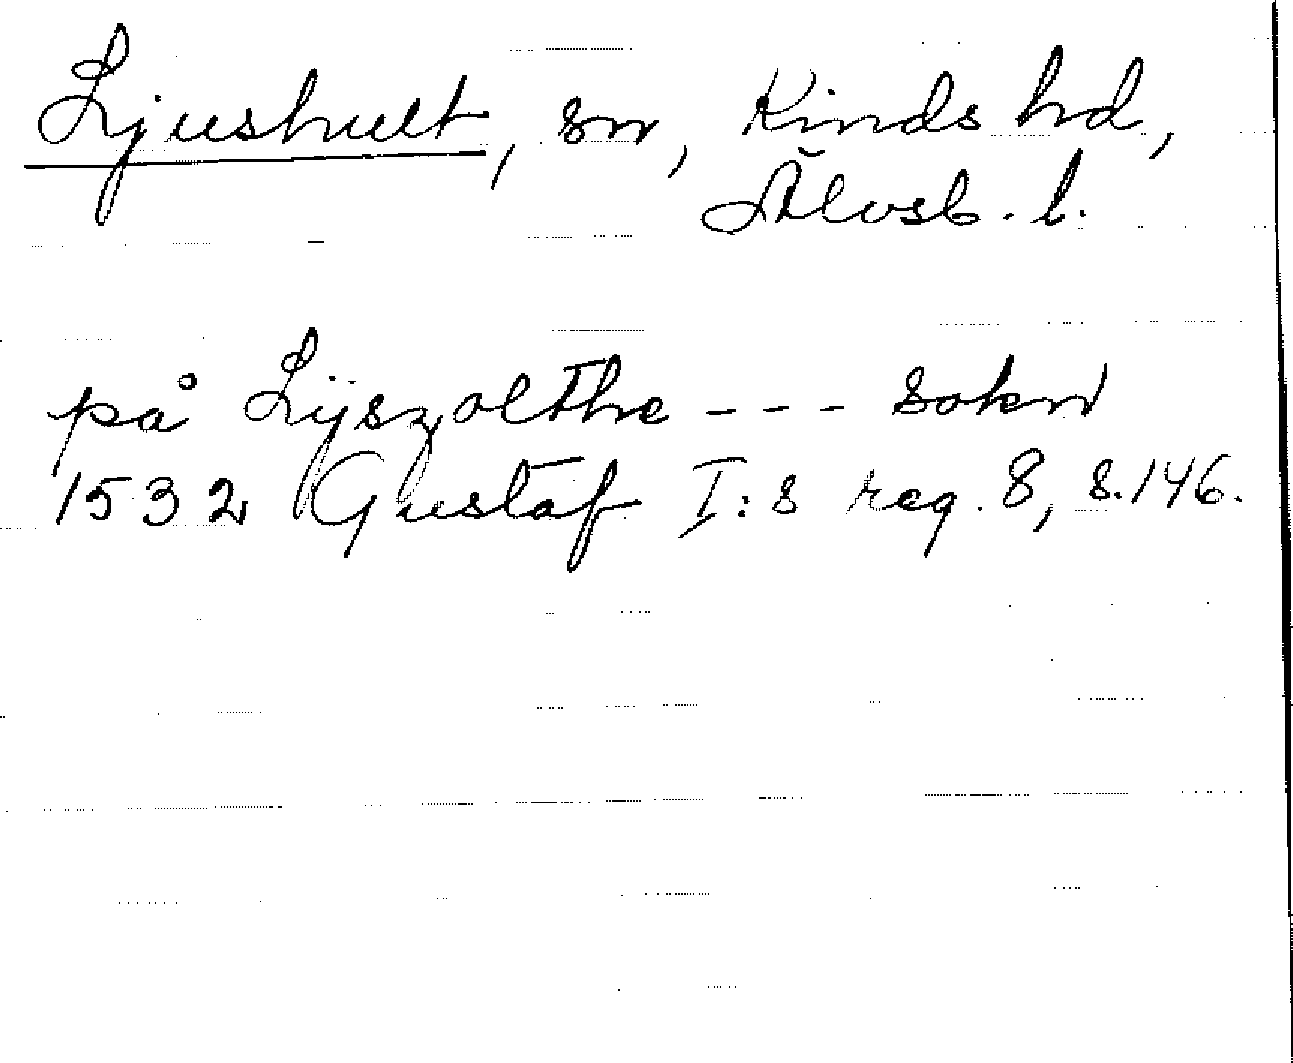 Ljushult, sn, Kinds hd,
Älvsb. l.
på Lÿszolthe - - - sokn
1532 Gustaf I:s reg. 8, s. 146.